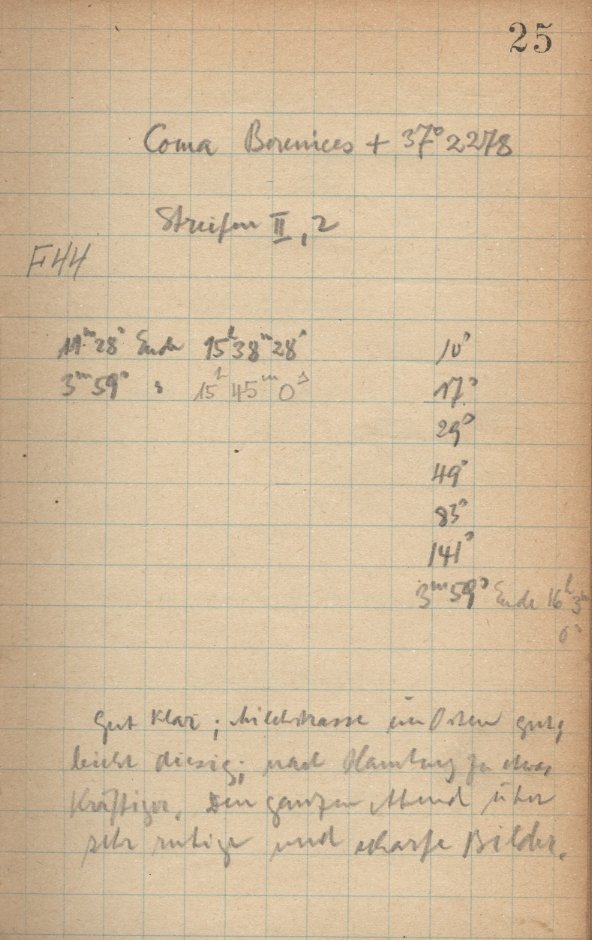 25
Coma Berenices + 37° 2278
Streifen II, 2
F44
11ᵐ 28ˢ Ende 15ʰ 38ᵐ 28ˢ 10ˢ
3ᵐ 59ˢ " 15ʰ 45ᵐ 0ˢ 17ˢ
29ˢ
49ˢ
83ˢ
141ˢ
3ᵐ 59ˢ Ende 16ʰ 3ᵐ
0ˢ
Gut klar; Milchstrasse im Osten gut,
leicht diesig; nach Hamburg zu etwas
kräftiger. Den ganzen Abend über
sehr ruhige und scharfe Bilder.